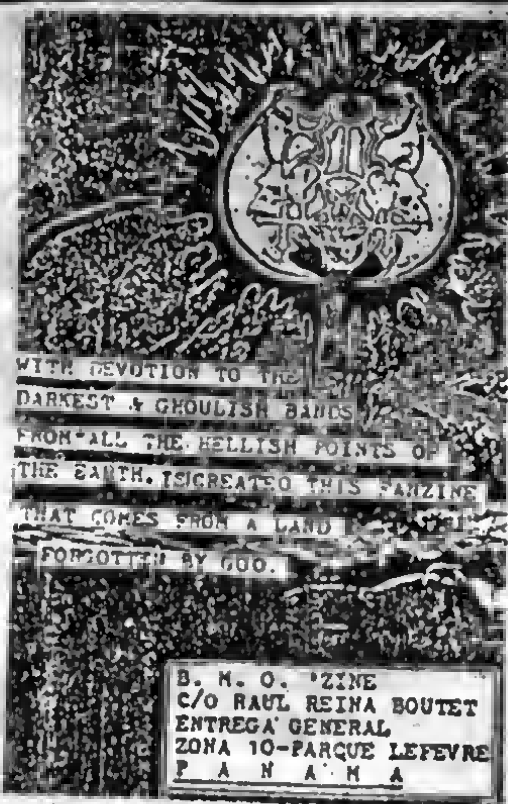 WITH DEVOTION TO THE
DARKEST & GHOULISH BANDS
FROM ALL THE HELLISH POINTS OF
THE EARTH. IS CREATED THIS FANZINE
THAT COMES FROM A LAND
FORGOTTEN BY GOD.
B. M. O. 'ZINE
C/O RAUL REINA BOUTET
ENTREGA GENERAL
ZONA 10-PARQUE LEFEVRE
P A N A M A